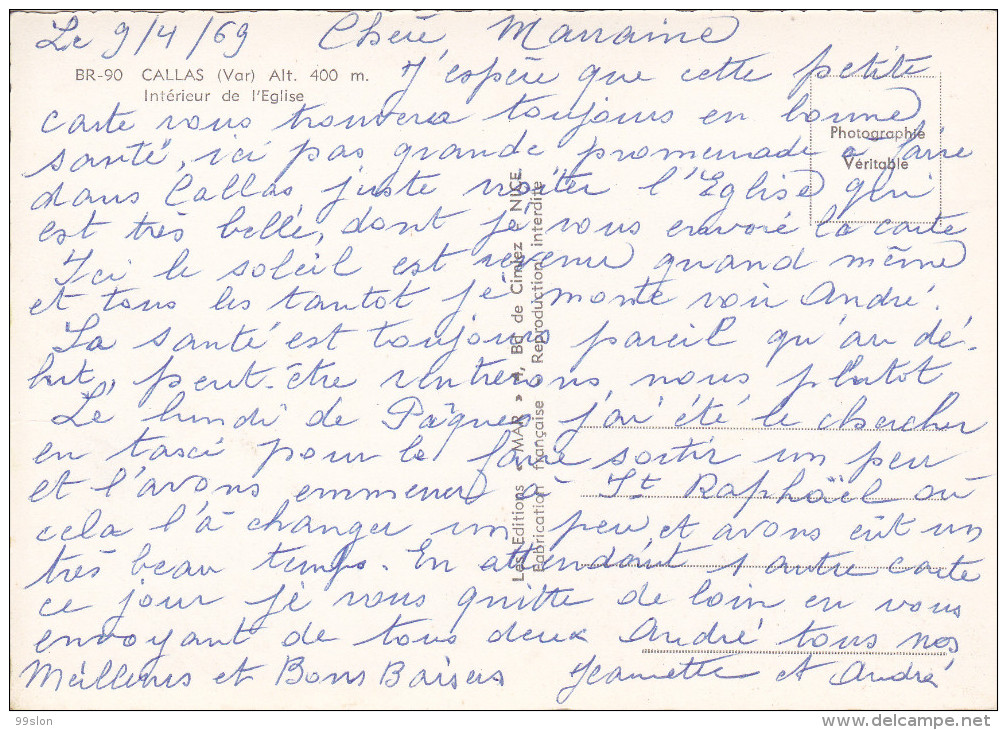 Le 9/4/69 Chère Marraine
BR-90 CALLAS (Var) Alt. 400 m.
Intérieur de l'Eglise
J'espère que cette petite
carte vous trouvera toujours en bonne
santé, ici pas grande promenade à faire
dans Callas juste visiter l'Eglise qui
est très belle, dont je vous envoie la carte
Ici le soleil est revenu quand même
et tous les tantot je monte voir André.
La santé est toujours pareil qu'au dé-
but, peut-être rentrerons, nous plutot
Le lundi de Pâques j'ai été le chercher
en taxi pour le faire sortir un peu
et l'avons emmener à St Raphaël où
cela l'à changer un peu et avons eût un
très beau temps. En attendant 1 autre carte
ce jour je vous quitte de loin en vous
envoyant de tous deux André tous nos
Meilleurs et Bons Baisers Jeannette et André
Photographie
Véritable
Les Editions « MAR » , Bd de Cimiez - NICE
Fabrication française - Reproduction interdite
99slon
delcampe.net